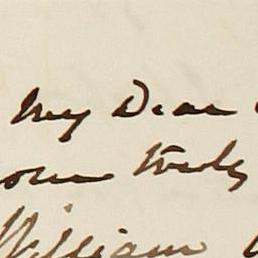 My Dear
truly
William